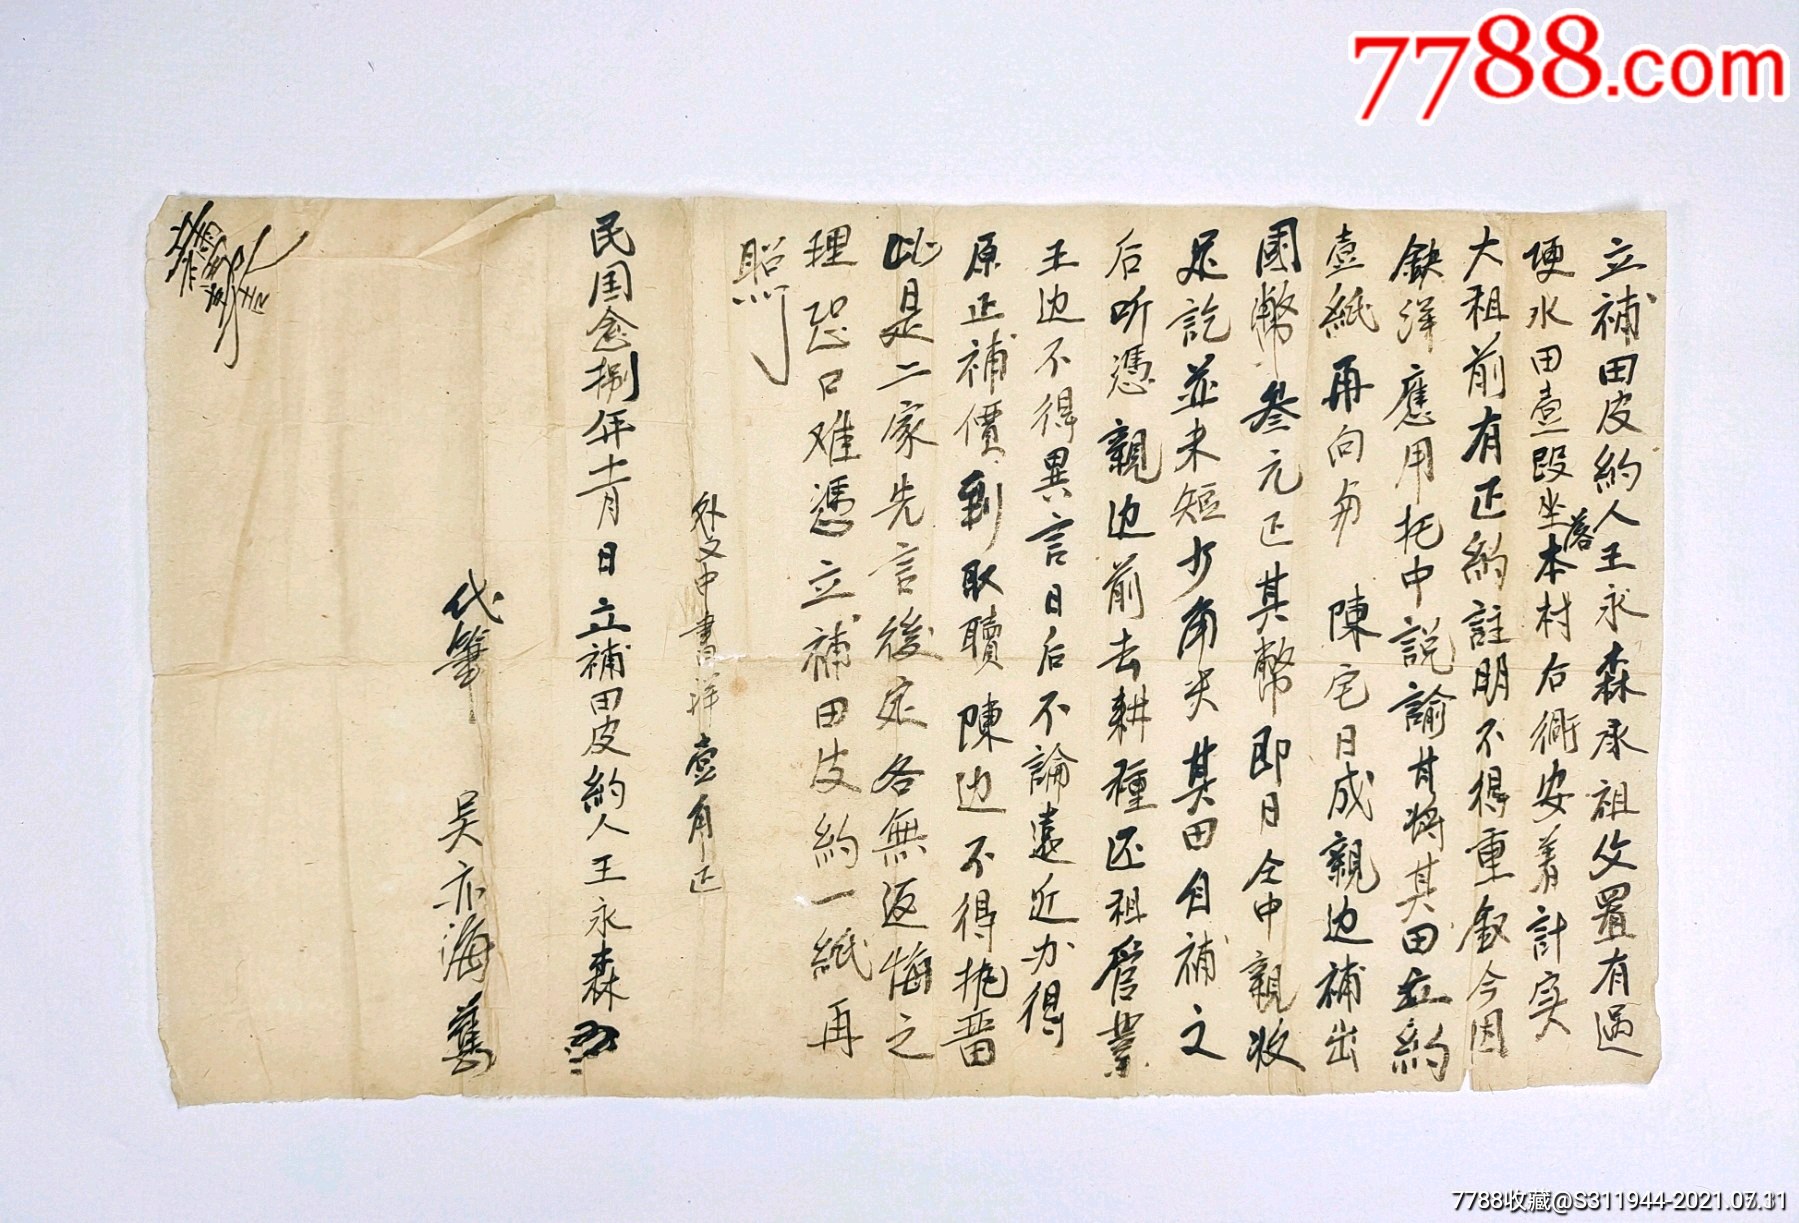 7788.com
立補田皮約人王永森承祖父置有過
便水田壹段坐落本村后衕安着計实
大祖前有正約註明不得重叙今因
缺洋應用托中説諭甘将其田立約
壹紙再向与陳宅日成親边補出
國幣叁元正其幣即日仝中親收
足訖並未短少角尖其田自補之
后听憑親边前去耕種还租管業
王边不得異言日后不論遠近办得
原正補價到取贖陳边不得抱畱
此是二家先言後定各無返悔之
理恐口难憑立補田皮約一紙再
照
外文中書洋壹角正
民国念捌年十一月日立補田皮約人王永森
代筆 吴亦海舊
7788收藏@S311944-2021.07.31